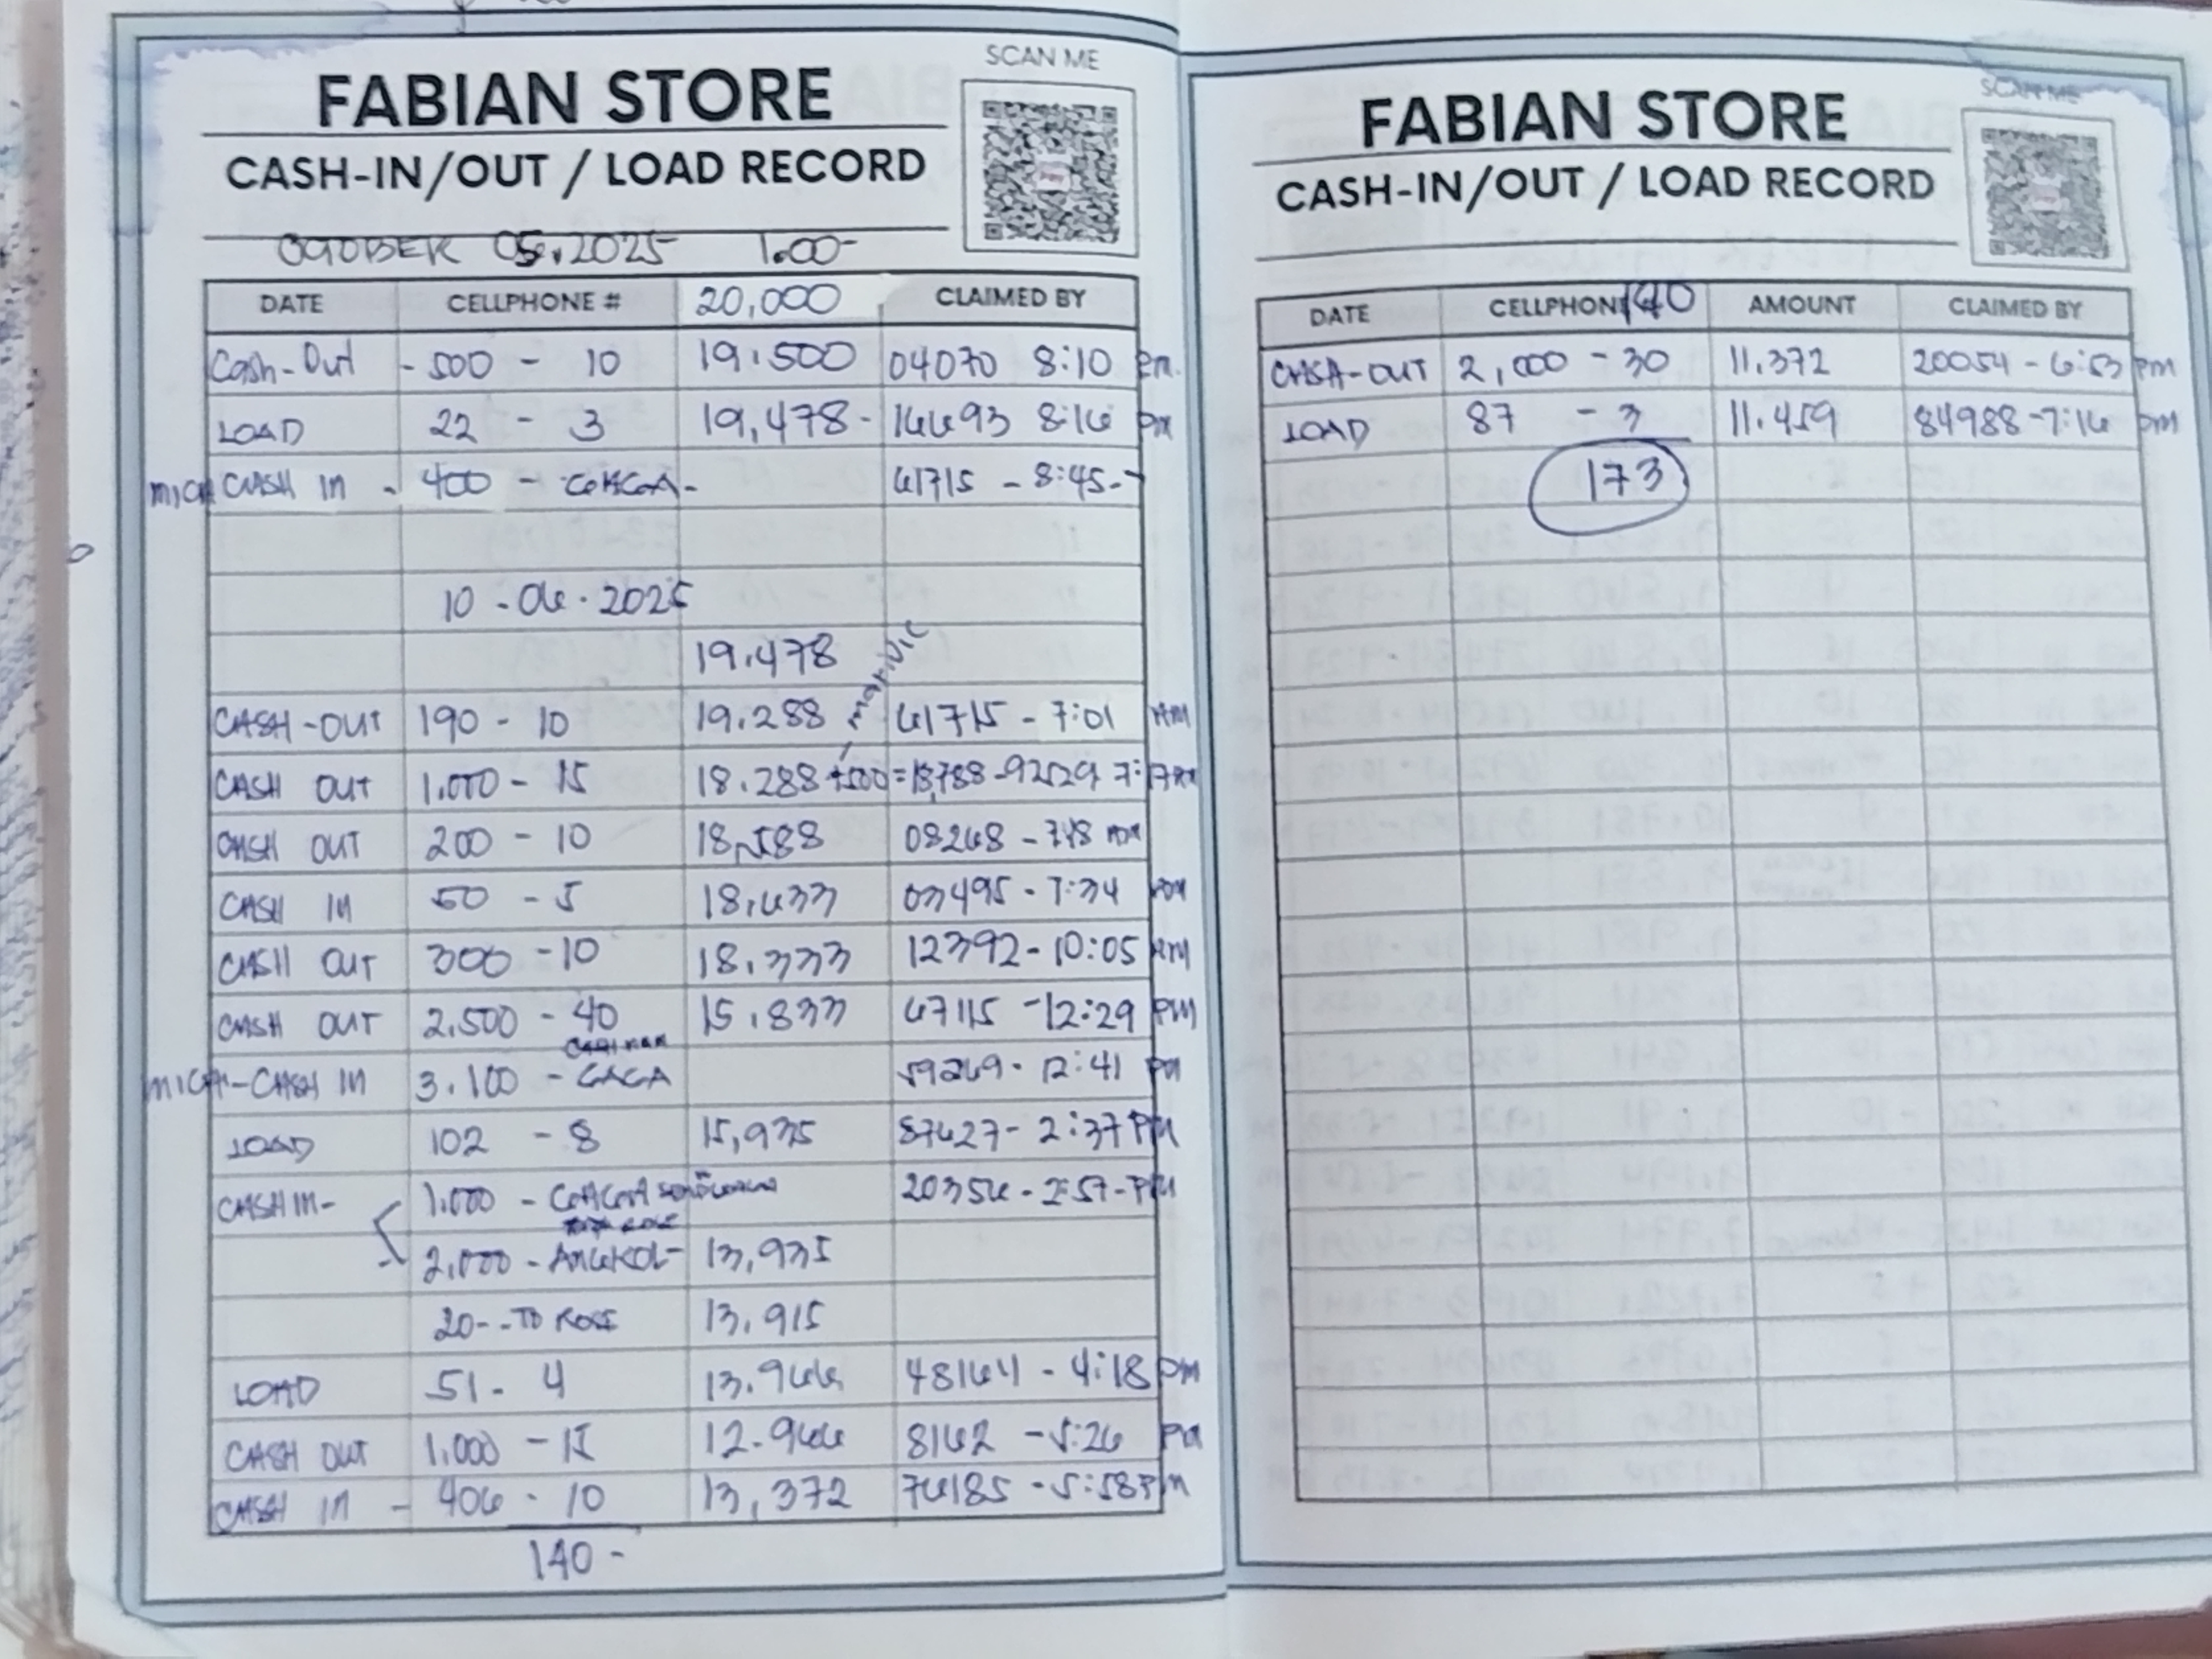 SCAN ME
FABIAN STORE
CASH-IN/OUT / LOAD RECORD
OCTOBER 05, 2025 1.00-
DATE CELLPHONE # 20,000 CLAIMED BY
Cash-Out - 500 - 10 19.500 04070 8:10 Pm.
LOAD 22 - 3 19,478- 16693 8:16 Pm
CASH IN - 400 - 61715 - 8:45-
10 - 06 - 2025
19.478
CASH-OUT 190 - 10 19.288 61715 - 7:01 AM
CASH OUT 1.000 - 15 18.288 +500 = 18,788 - 92529 7:17 AM
CASH OUT 200 - 10 18,588 08268 - 7:18 AM
CASH IN 50 - 5 18,633 03495 - 7:34 AM
CASH OUT 300 - 10 18,333 12392 - 10:05 AM
CASH OUT 2,500 - 40 15,833 67115 - 12:29 PM
CASH IN 3.100 - GAGA 59269 - 12:41 PM
LOAD 102 - 8 15,935 87627 - 2:37 PM
CASH IN - 1.000 - 20356 - 2:57 - PM
2,000 - ANGKOL - 13,935
20 - - TO ROSE 13,915
LOAD 51 - 4 13.966 48164 - 4:18 pm
CASH OUT 1.000 - 15 12.966 8162 - 5:26 PM
CASH IN - 406 - 10 13,372 76185 - 5:58 PM
140 -
SCAN ME
FABIAN STORE
CASH-IN/OUT / LOAD RECORD
DATE CELLPHONE 140 AMOUNT CLAIMED BY
CASH-OUT 2,000 - 30 11.372 20054 - 6:53 pm
LOAD 87 - 3 11.459 84988 - 7:16 pm
173